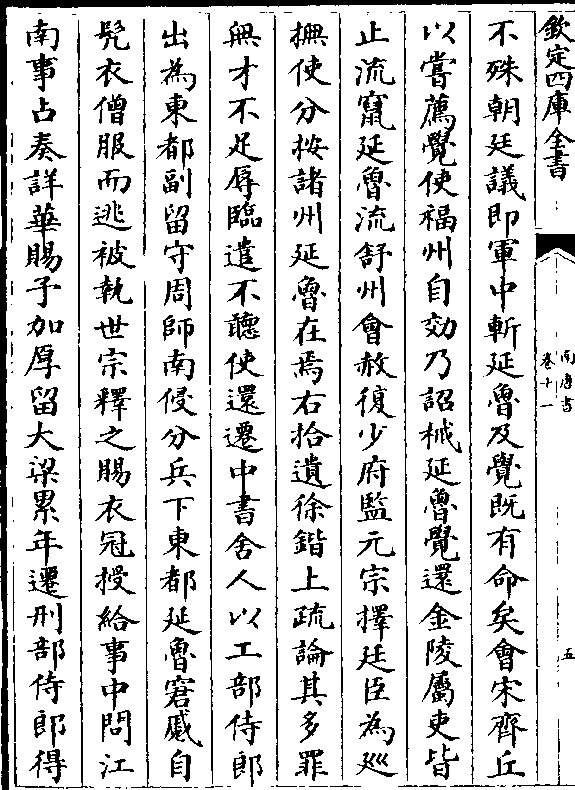 欽定四庫全書
南唐書
卷十一
五
不殊朝廷議即軍中斬延魯及覺既有命矣會宋齊丘
以嘗薦覺使福州自劾乃詔械延魯覺還金陵屬吏皆
止流竄延魯流舒州會赦復少府監元宗擇廷臣為巡
撫使分按諸州延魯在焉右拾遺徐鍇上疏論其多罪
無才不足辱臨遣不聽使還遷中書舍人以工部侍郎
出為東都副留守周師南侵分兵下東都延魯窘蹙自
髠衣僧服而逃被執世宗釋之賜衣冠授給事中問江
南事占奏詳華賜予加厚留大梁累年遷刑部侍郎得